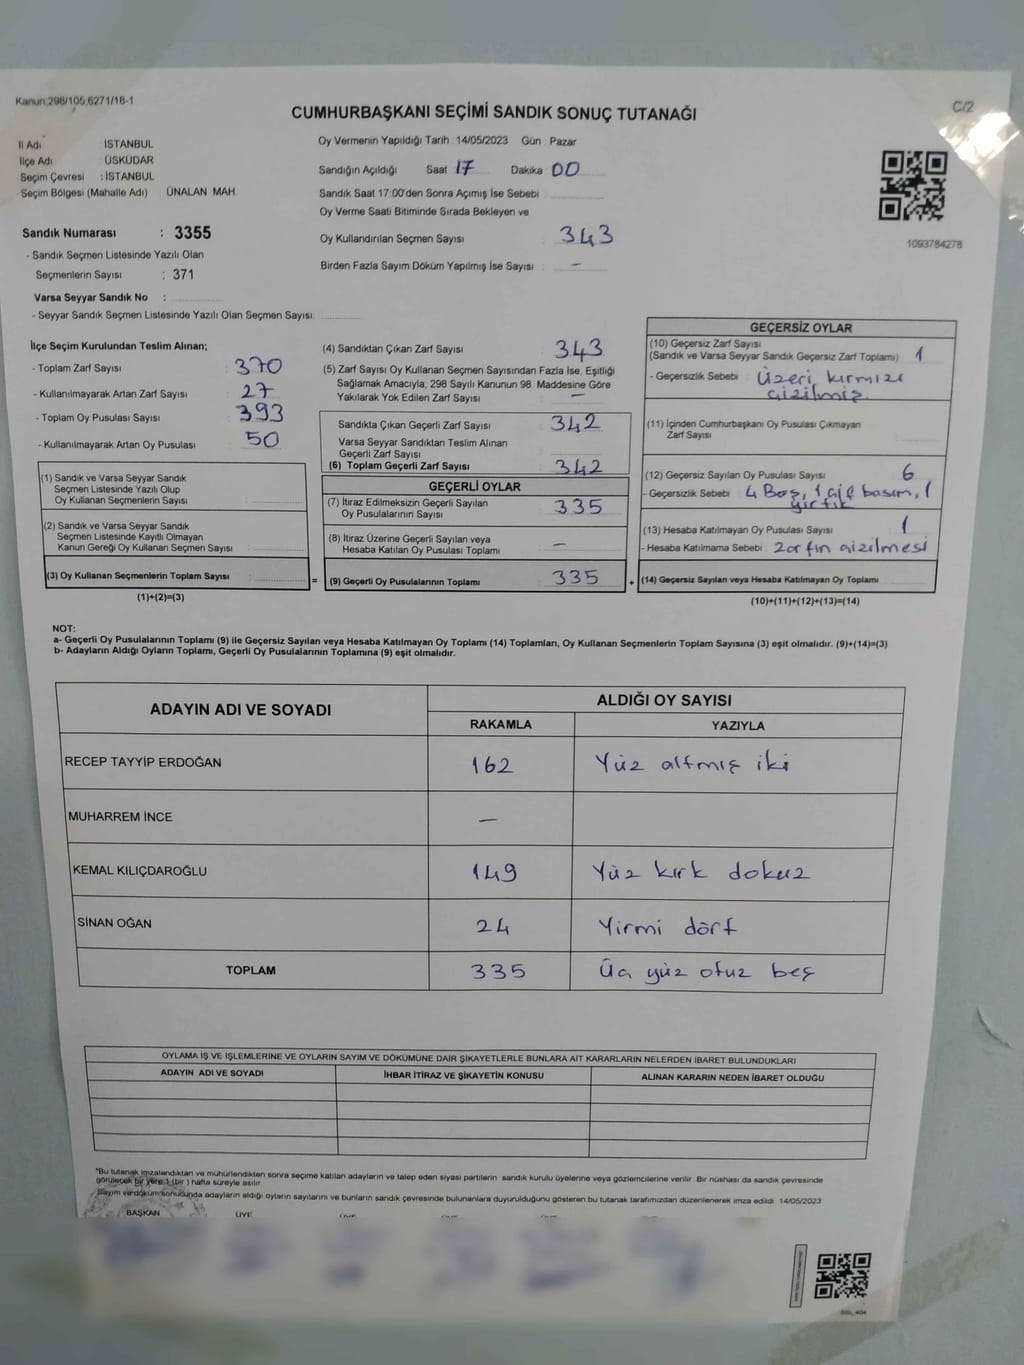 Kanun,298/105,6271/18-1
C/2
CUMHURBAŞKANI SEÇİMİ SANDIK SONUÇ TUTANAĞI
İl Adı İSTANBUL
İlçe Adı ÜSKÜDAR
Seçim Çevresi : İSTANBUL
Seçim Bölgesi (Mahalle Adı) ÜNALAN MAH.
Oy Vermenin Yapıldığı Tarih : 14/05/2023 Gün : Pazar
Sandığın Açıldığı Saat 17 Dakika 00
Sandık Saat 17:00'den Sonra Açımış İse Sebebi
Oy Verme Saati Bitiminde Sırada Bekleyen ve
Oy Kullandırılan Seçmen Sayısı : 343
Birden Fazla Sayım Döküm Yapılmış İse Sayısı : -
1093784278
Sandık Numarası : 3355
- Sandık Seçmen Listesinde Yazılı Olan
Seçmenlerin Sayısı : 371
Varsa Seyyar Sandık No :
- Seyyar Sandık Seçmen Listesinde Yazılı Olan Seçmen Sayısı:
İlçe Seçim Kurulundan Teslim Alınan;
- Toplam Zarf Sayısı : 370
- Kullanılmayarak Artan Zarf Sayısı : 27
- Toplam Oy Pusulası Sayısı : 393
- Kullanılmayarak Artan Oy Pusulası : 50
(1) Sandık ve Varsa Seyyar Sandık
Seçmen Listesinde Yazılı Olup
Oy Kullanan Seçmenlerin Sayısı :
(2) Sandık ve Varsa Seyyar Sandık
Seçmen Listesinde Kayıtlı Olmayan
Kanun Gereği Oy Kullanan Seçmen Sayısı :
(3) Oy Kullanan Seçmenlerin Toplam Sayısı :
(1)+(2)=(3)
(4) Sandıktan Çıkan Zarf Sayısı : 343
(5) Zarf Sayısı Oy Kullanan Seçmen Sayısından Fazla İse, Eşitliği
Sağlamak Amacıyla; 298 Sayılı Kanunun 98. Maddesine Göre
Yakılarak Yok Edilen Zarf Sayısı : -
Sandıkta Çıkan Geçerli Zarf Sayısı : 342
Varsa Seyyar Sandıktan Teslim Alınan
Geçerli Zarf Sayısı
(6) Toplam Geçerli Zarf Sayısı 342
GEÇERLİ OYLAR
(7) İtiraz Edilmeksizin Geçerli Sayılan
Oy Pusulalarının Sayısı : 335
(8) İtiraz Üzerine Geçerli Sayılan veya
Hesaba Katılan Oy Pusulası Toplamı : -
= (9) Geçerli Oy Pusulalarının Toplamı : 335 +
GEÇERSİZ OYLAR
(10) Geçersiz Zarf Sayısı
(Sandık ve Varsa Seyyar Sandık Geçersiz Zarf Toplamı) : 1
- Geçersizlik Sebebi : Üzeri kırmızı
çizilmiş.
(11) İçinden Cumhurbaşkanı Oy Pusulası Çıkmayan
Zarf Sayısı
(12) Geçersiz Sayılan Oy Pusulası Sayısı : 6
- Geçersizlik Sebebi : 4 Boş, 1 çift basım, 1
yırtık
(13) Hesaba Katılmayan Oy Pusulası Sayısı : 1
- Hesaba Katılmama Sebebi : Zarfın çizilmesi
(14) Geçersiz Sayılan veya Hesaba Katılmayan Oy Toplamı
(10)+(11)+(12)+(13)=(14)
NOT:
a- Geçerli Oy Pusulalarının Toplamı (9) ile Geçersiz Sayılan veya Hesaba Katılmayan Oy Toplamı (14) Toplamları, Oy Kullanan Seçmenlerin Toplam Sayısına (3) eşit olmalıdır. (9)+(14)=(3)
b- Adayların Aldığı Oyların Toplamı, Geçerli Oy Pusulalarının Toplamına (9) eşit olmalıdır.
ADAYIN ADI VE SOYADI ALDIĞI OY SAYISI
RAKAMLA YAZIYLA
RECEP TAYYİP ERDOĞAN 162 Yüz altmış iki
MUHARREM İNCE -
KEMAL KILIÇDAROĞLU 149 Yüz kırk dokuz
SİNAN OĞAN 24 Yirmi dört
TOPLAM 335 Üç yüz otuz beş
OYLAMA İŞ VE İŞLEMLERİNE VE OYLARIN SAYIM VE DÖKÜMÜNE DAİR ŞİKAYETLERLE BUNLARA AİT KARARLARIN NELERDEN İBARET BULUNDUKLARI
ADAYIN ADI VE SOYADI İHBAR İTİRAZ VE ŞİKAYETİN KONUSU ALINAN KARARIN NEDEN İBARET OLDUĞU
*Bu tutanak imzalandıktan ve mühürlendikten sonra seçime katılan adayların ve talep eden siyasi partilerin sandık kurulu üyelerine veya gözlemcilerine verilir. Bir nüshası da sandık çevresinde
görülecek bir yere 1 (bir) hafta süreyle asılır.
Sayım ve döküm sonucunda adayların aldığı oyların sayılarını ve bunların sandık çevresinde bulunanlara duyurulduğunu gösteren bu tutanak tarafımızdan düzenlenerek imza edildi. 14/05/2023
BAŞKAN ÜYE